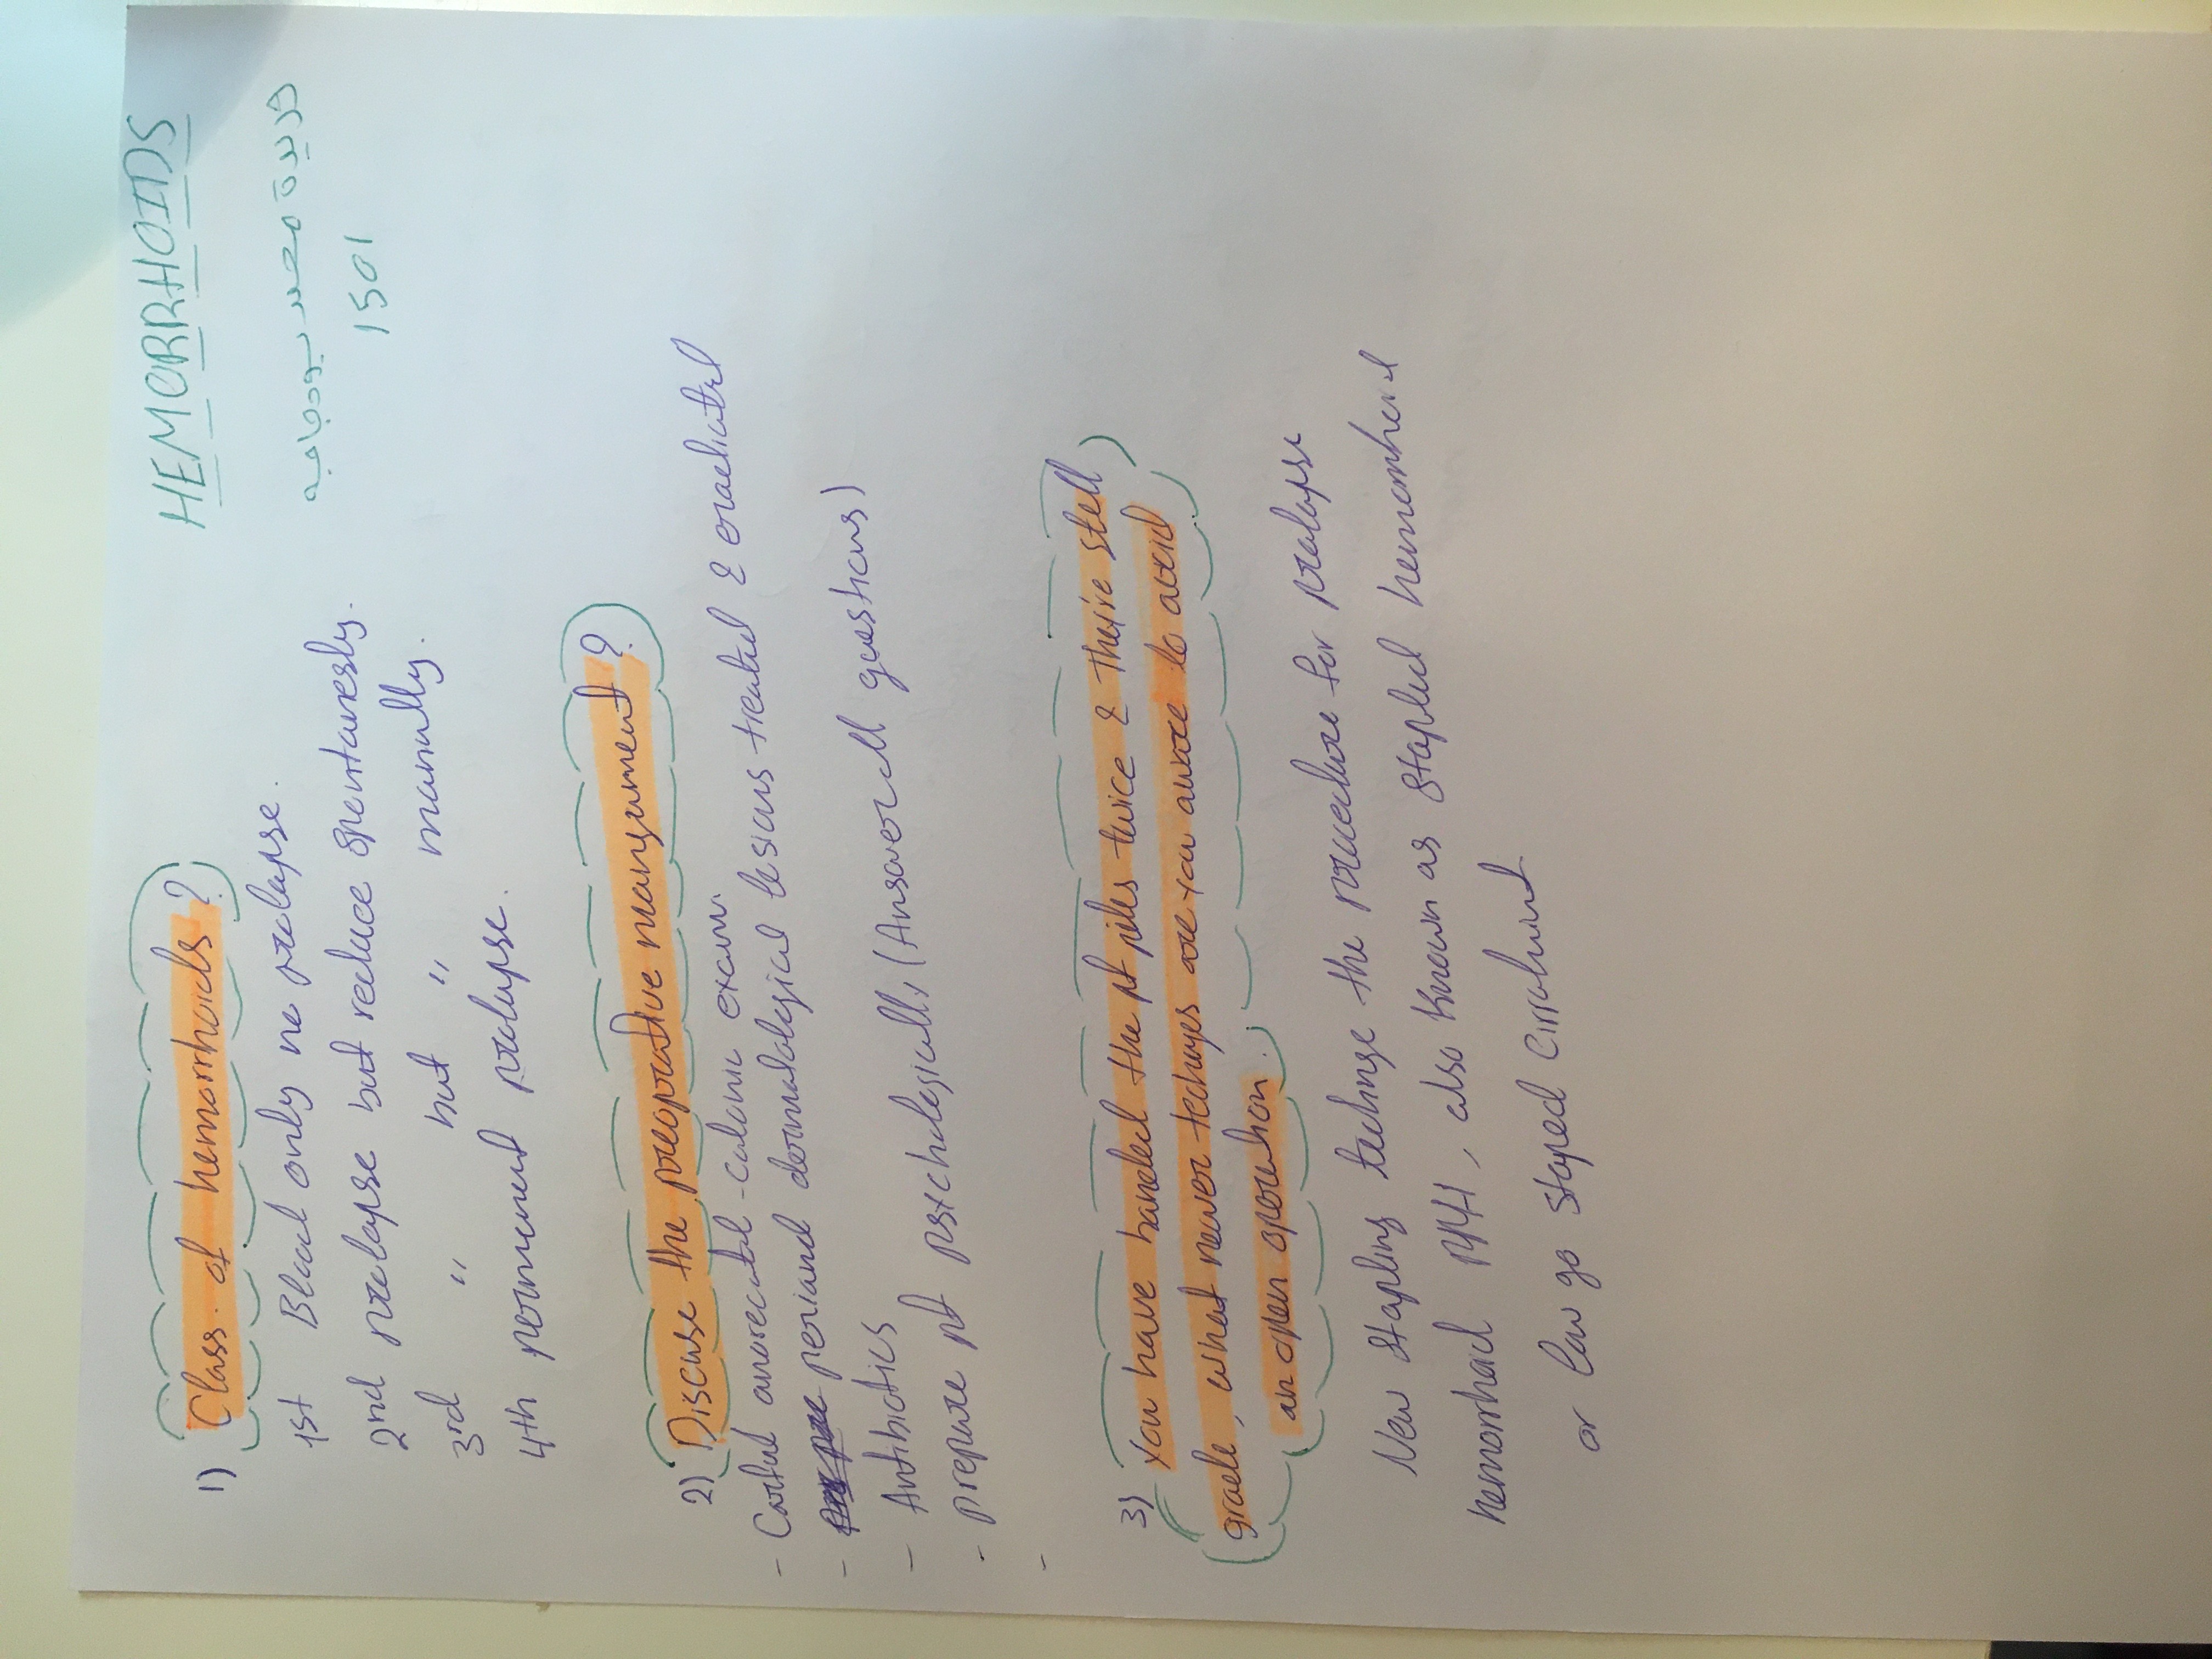 HEMORRHOIDS
فريدة محمد بودجاجه
1501
1) Class. of hemorrhoids?
1st Blead only no prolapse.
2nd prolapse but reduce spontanesly.
3rd " but " manually.
4th permenent prolapse.
2) Discuse the preoprative mangument?
- Carful anorectal-colonic exam.
- perianal dermatological lesions treated & eradicated
- Antibiotics
- prepare pt psychologically (Answer all questions)
-
3) You have banded the pt piles twice & their still
grade, what newer techngs are you aware to avoid
an open operation.
New stapling technge the procedure for prolapse
hemorrhoid PPH, also known as stapled hemorrhoid
or staped